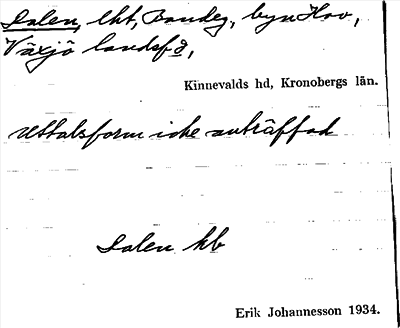 Dalen, lht, Bondeg, byn Hov,
Växjö landsfs,
Kinnevalds hd, Kronobergs län.
Uttalsform icke anträffad
Dalen kb
Erik Johannesson 1934.